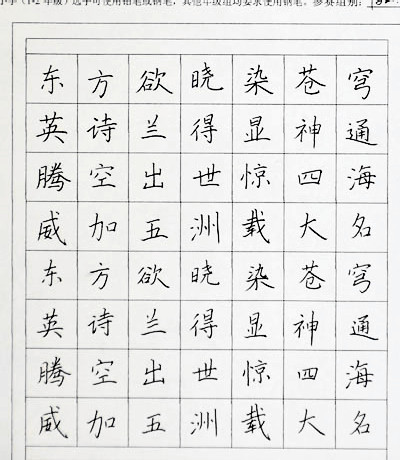 小学（1-2年级）选手可使用铅笔或钢笔，其他年级组均要求使用钢笔。参赛组别：
东方欲晓染苍穹
英诗兰得显神通
腾空出世惊四海
威加五洲载大名
东方欲晓染苍穹
英诗兰得显神通
腾空出世惊四海
威加五洲载大名